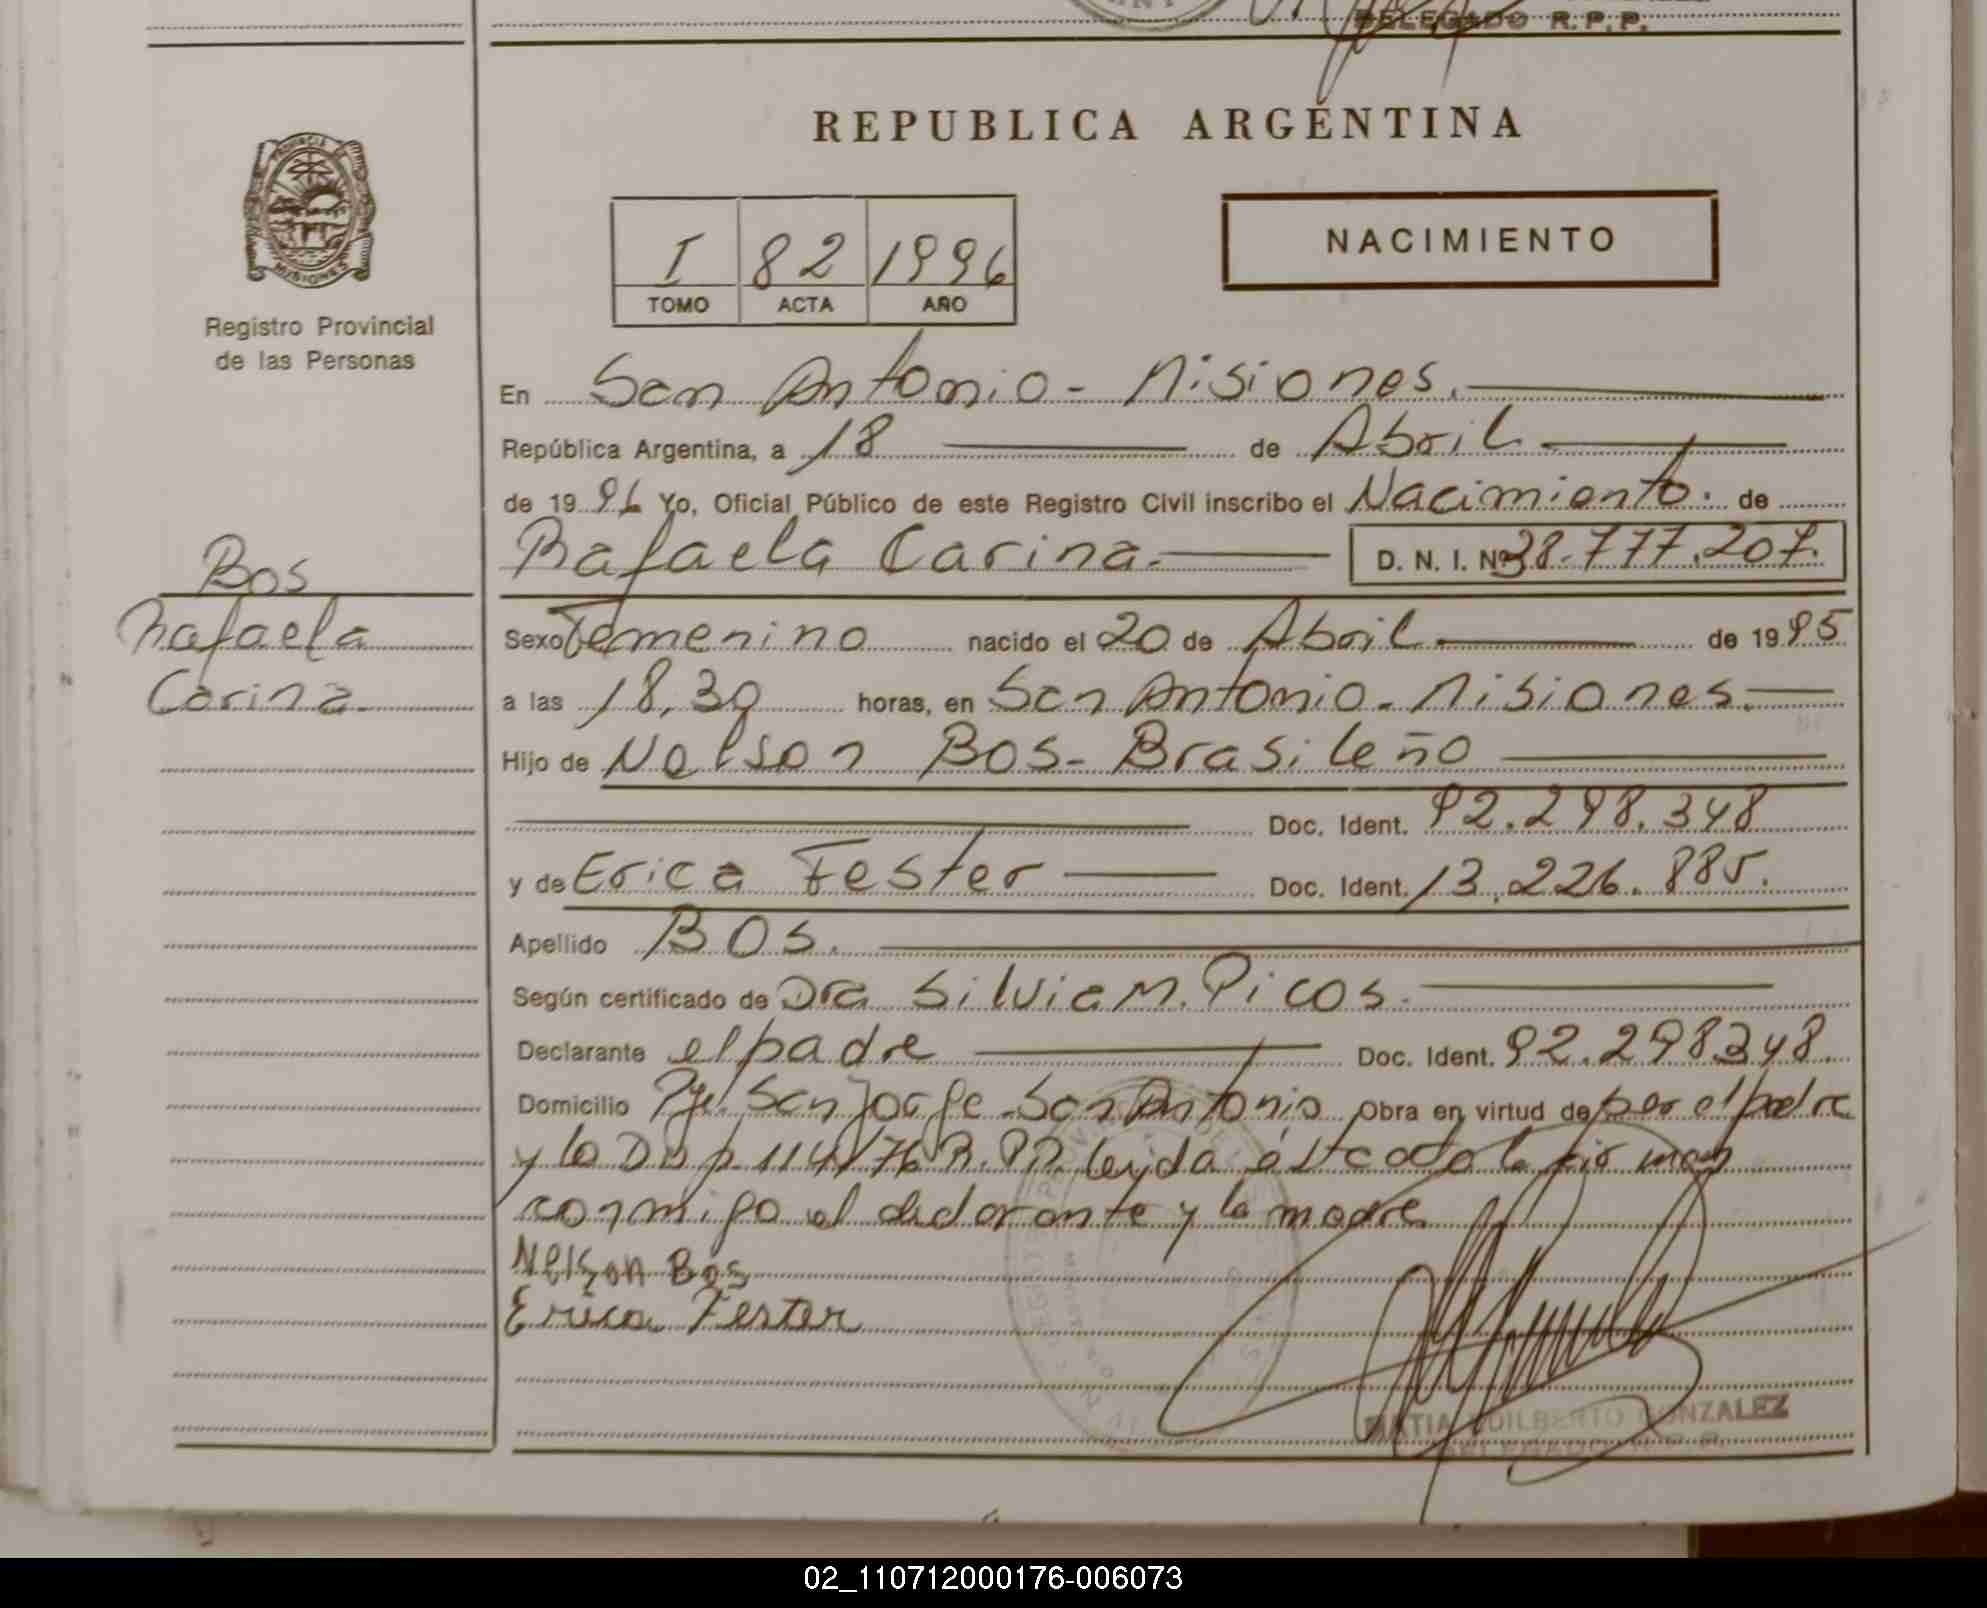 DELEGADO R.P.P.
REPUBLICA ARGENTINA
PROVINCIA DE MISIONES
Registro Provincial
de las Personas
I 82 1996
TOMO ACTA AÑO
NACIMIENTO
En San Antonio - Misiones.
República Argentina, a 18 de Abril
de 1996 Yo, Oficial Público de este Registro Civil inscribo el Nacimiento. de
Bos
Rafaela
Carina.
Rafaela Carina. D. N. I. Nº 38.777.207.
Sexo Femenino nacido el 20 de Abril de 1995
a las 18,30 horas, en San Antonio - Misiones.
Hijo de Nelson Bos - Brasileño
Doc. Ident. 92.298.348
y de Erica Fester Doc. Ident. 13.226.885.
Apellido Bos.
Según certificado de Dra Silvia M. Picos.
Declarante el padre Doc. Ident. 92.298348.
Domicilio Pje. San Jorge - San Antonio Obra en virtud de por el padre
y la 114/76 R.PP. leyda
conmigo el declarante y la madre
Nelson Bos
Erica Fester
EDILBERTO GONZALEZ
DELEGADO R.P.P.
02_110712000176-006073